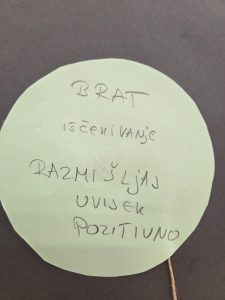 BRAT
iščekivanje
RAZMIŠLJAJ
UVIJEK
POZITIVNO